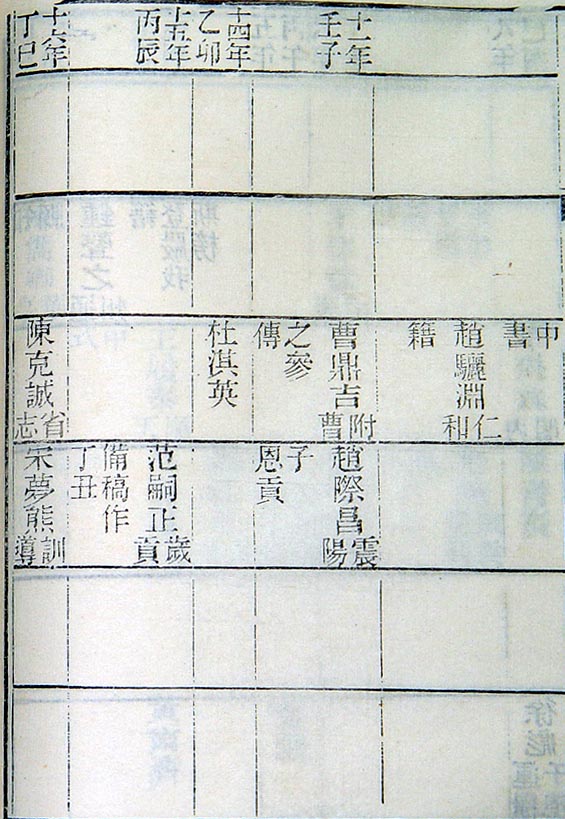 十一年壬子
十四年乙卯
十五年丙辰
十六年丁巳
中書
趙驪淵仁和
籍
曹鼎吉附曹
之參傳
杜淇英
陳克誠省志
趙際昌震陽
子恩貢
范嗣正歲貢
備稿作丁丑
宋夢熊訓導